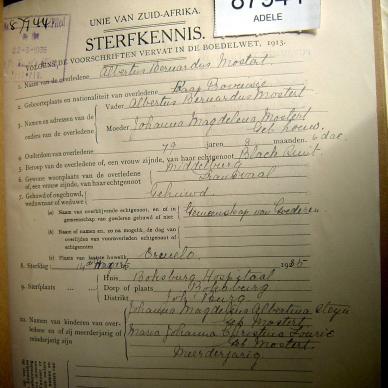 87944
ADELE
UNIE VAN ZUID-AFRIKA.
STERFKENNIS.
VOLGENS DE VOORSCHRIFTEN VERVAT IN DE BOEDELWET, 1913.
1. Naam van de overledene Albertus Bernardus Mostert
2. Geboorteplaats en nationaliteit van overledene Kaap Provincie
3. Namen en adressen van de ouders van de overledene
Vader Albertus Bernardus Mostert
Moeder Johanna Magdalena Mostert
geb Louw.
4. Ouderdom van overledene 79 jaren 8 maanden. 6 dae.
5. Beroep van de overledene of, een vrouw zijnde, van haar echtgenoot
6. Gewone woonplaats van de overledene of, een vrouw zijnde, van haar echtgenoot
Middelburg
Transvaal
7. Gehuwd of ongehuwd, weduwnaar of weduwe Gehuwd
(a) Naam van overblijvende echtgenoot, en of in gemeenschap van goederen gehuwd of niet
Gemeenskap van Goederen
(b) Naam of namen en, zo na mogelik, de dag van overlijden van vooroverleden echtgenoot of echtgenoten
(c) Plaats van laatste huwelik Ermelo
8. Sterfdag 14de 1925
9. Sterfplaats
Huis Boksburg Hospitaal
Dorp of plaats Boksburg
Distrikt Joh. Burg
10. Namen van kinderen van overledene en of zij meerderjarig of minderjarig zijn
Johanna Magdalena Albertina Steyn
geb Mostert
Maria Johanna Christina Fourie
geb Mostert.
Meerderjarig